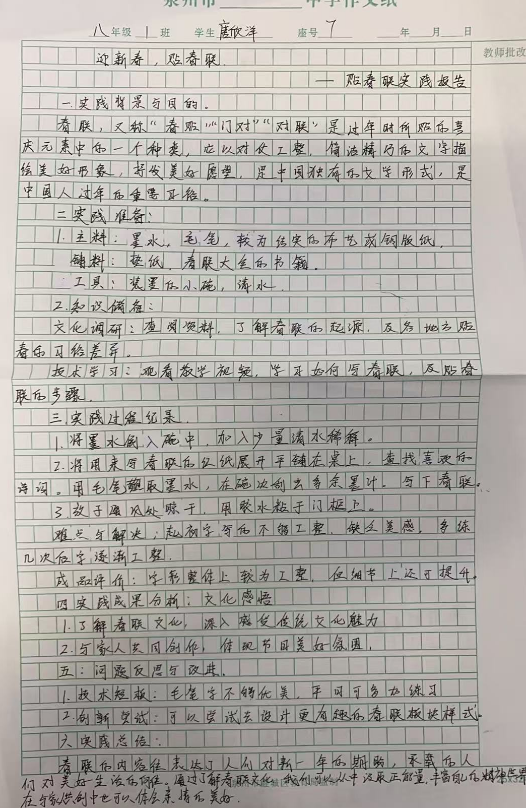 泉州市 中学作文纸
八年级 1 班 学生 唐欣洋 座号 7 年 月 日
教师批改
迎新春，贴春联
——贴春联实践报告
一.实践背景与目的。
春联，又称“春贴”“门对”“对联”是过年时所贴的喜
庆元素中的一个种类，它以对仗工整，简洁精巧的文字描
绘美好形象，抒发美好愿望，是中国独有的文学形式，是
中国人过年的重要习俗。
二.实践准备：
1.主料：墨水，毛笔，较为结实的布艺或铜版纸，
辅料：垫纸，春联大全的书籍。
工具：装墨的小碗，清水。
2.知识储备：
文化调研：查阅资料，了解春联的起源，及各地方贴
春的习俗差异。
技术学习：观看教学视频，学习如何写春联，及贴春
联的步骤。
三.实践过程纪录。
1.将墨水倒入碗中，加入少量清水稀释。
2.将用来写春联的红纸展开平铺在桌上，查找喜欢的
诗词。用毛笔蘸取墨水，在碗边刮出多余墨汁。写下春联。
3.放于通风处晾干，用胶水粘于门框上。
难点与解决：起初字写的不够工整，缺乏美感，多练
几次后字逐渐工整。
成品评价：字形整体上较为工整，但细节上还可提升。
四.实践成果分析：文化感悟
1.了解春联文化，深入感受传统文化魅力
2.与家人共同创作，体现节日美好氛围。
五：问题反思与改进。
1.技术短板：毛笔字不够优美，平日可多加练习
2.创新尝试：可以尝试去设计更有趣的春联板块样式。
六.实践总结：
春联的内容往表达了人们对新一年的期盼，承载的人
们对美好生活的向往，通过了解春联文化，我们可以从中汲取正能量，丰富我的精神世界
在与家人创中也可以体会亲情的美好。